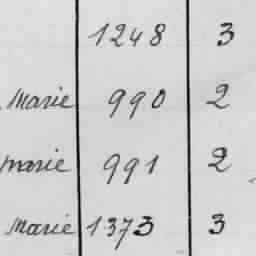 1248 3
Marie 990 2
Marie 991 2
Marie 1373 3